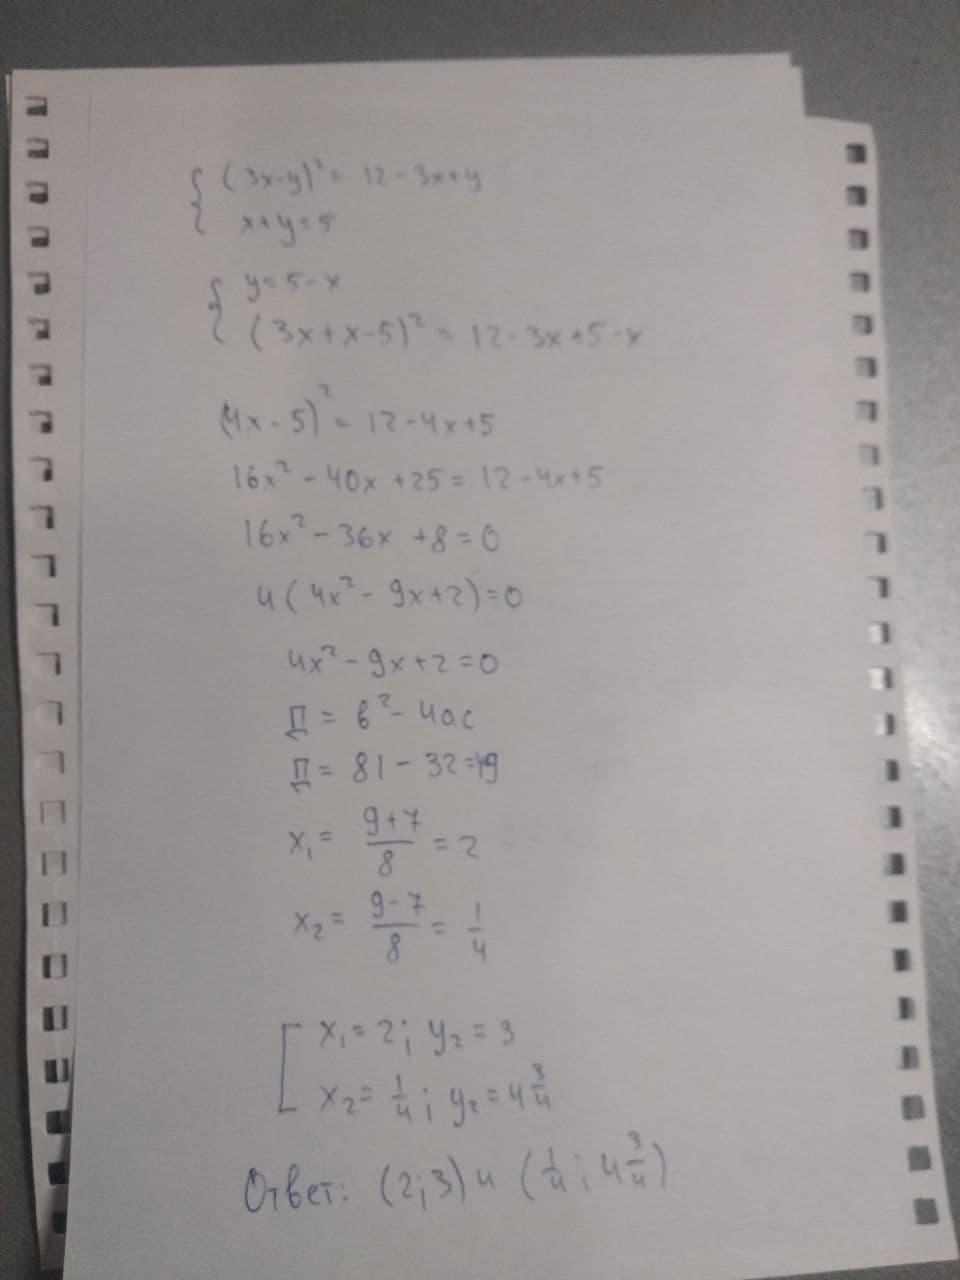 { (3x-y)² = 12 - 3x+y
x+y=5
{ y=5-x
(3x+x-5)² = 12-3x+5-x
(4x-5)² = 12-4x+5
16x² - 40x +25 = 12-4x+5
16x² - 36x +8 = 0
4(4x² - 9x+2)=0
4x² - 9x+2=0
Д = в² - 4ас
Д = 81 - 32=49
x₁ = (9+7)/8 = 2
x₂ = (9-7)/8 = 1/4
[ x₁ = 2; y₂ = 3
x₂ = 1/4; y₂ = 4 3/4
Ответ: (2;3) и (1/4; 4 3/4)